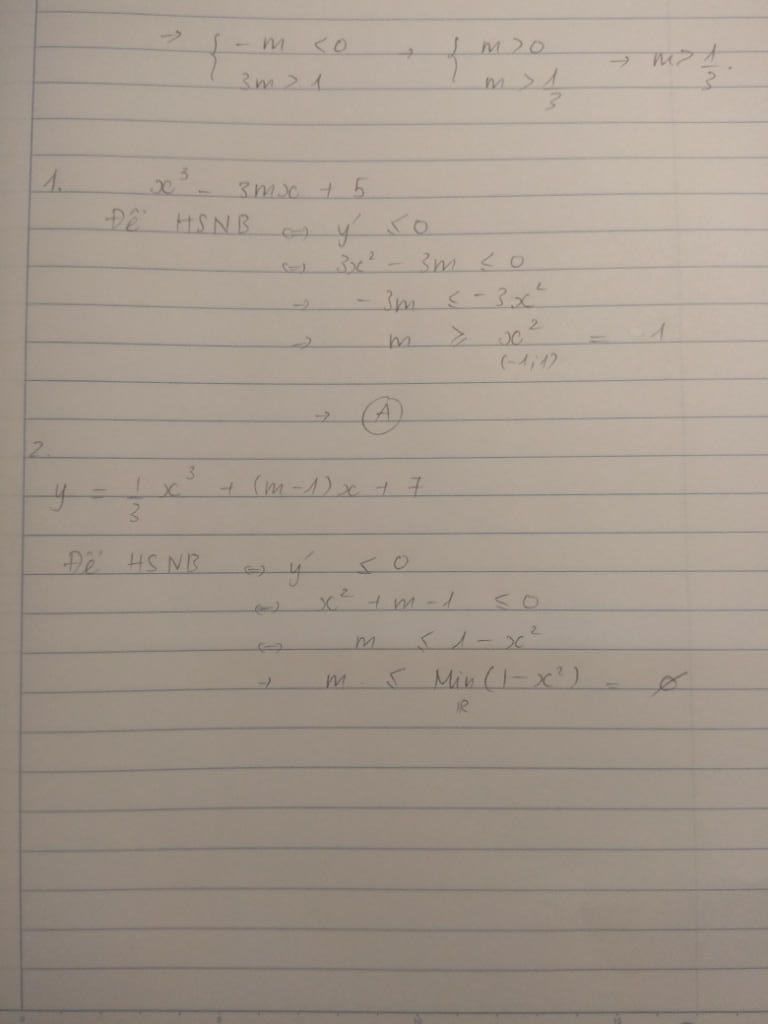 → { - m < 0 → { m > 0 → m > 1/3.
3m > 1 m > 1/3
1. x³ - 3mx + 5
Để HSNB ⇔ y' ≤ 0
⇔ 3x² - 3m ≤ 0
→ -3m ≤ -3x²
→ m ≥ x² = 1
(-1;1)
→ A
2.
y = 1/3 x³ + (m-1)x + 7
Để HSNB ⇔ y' ≤ 0
⇔ x² + m - 1 ≤ 0
⇔ m ≤ 1 - x²
→ m ≤ Min (1 - x²) = ∅
ℝ